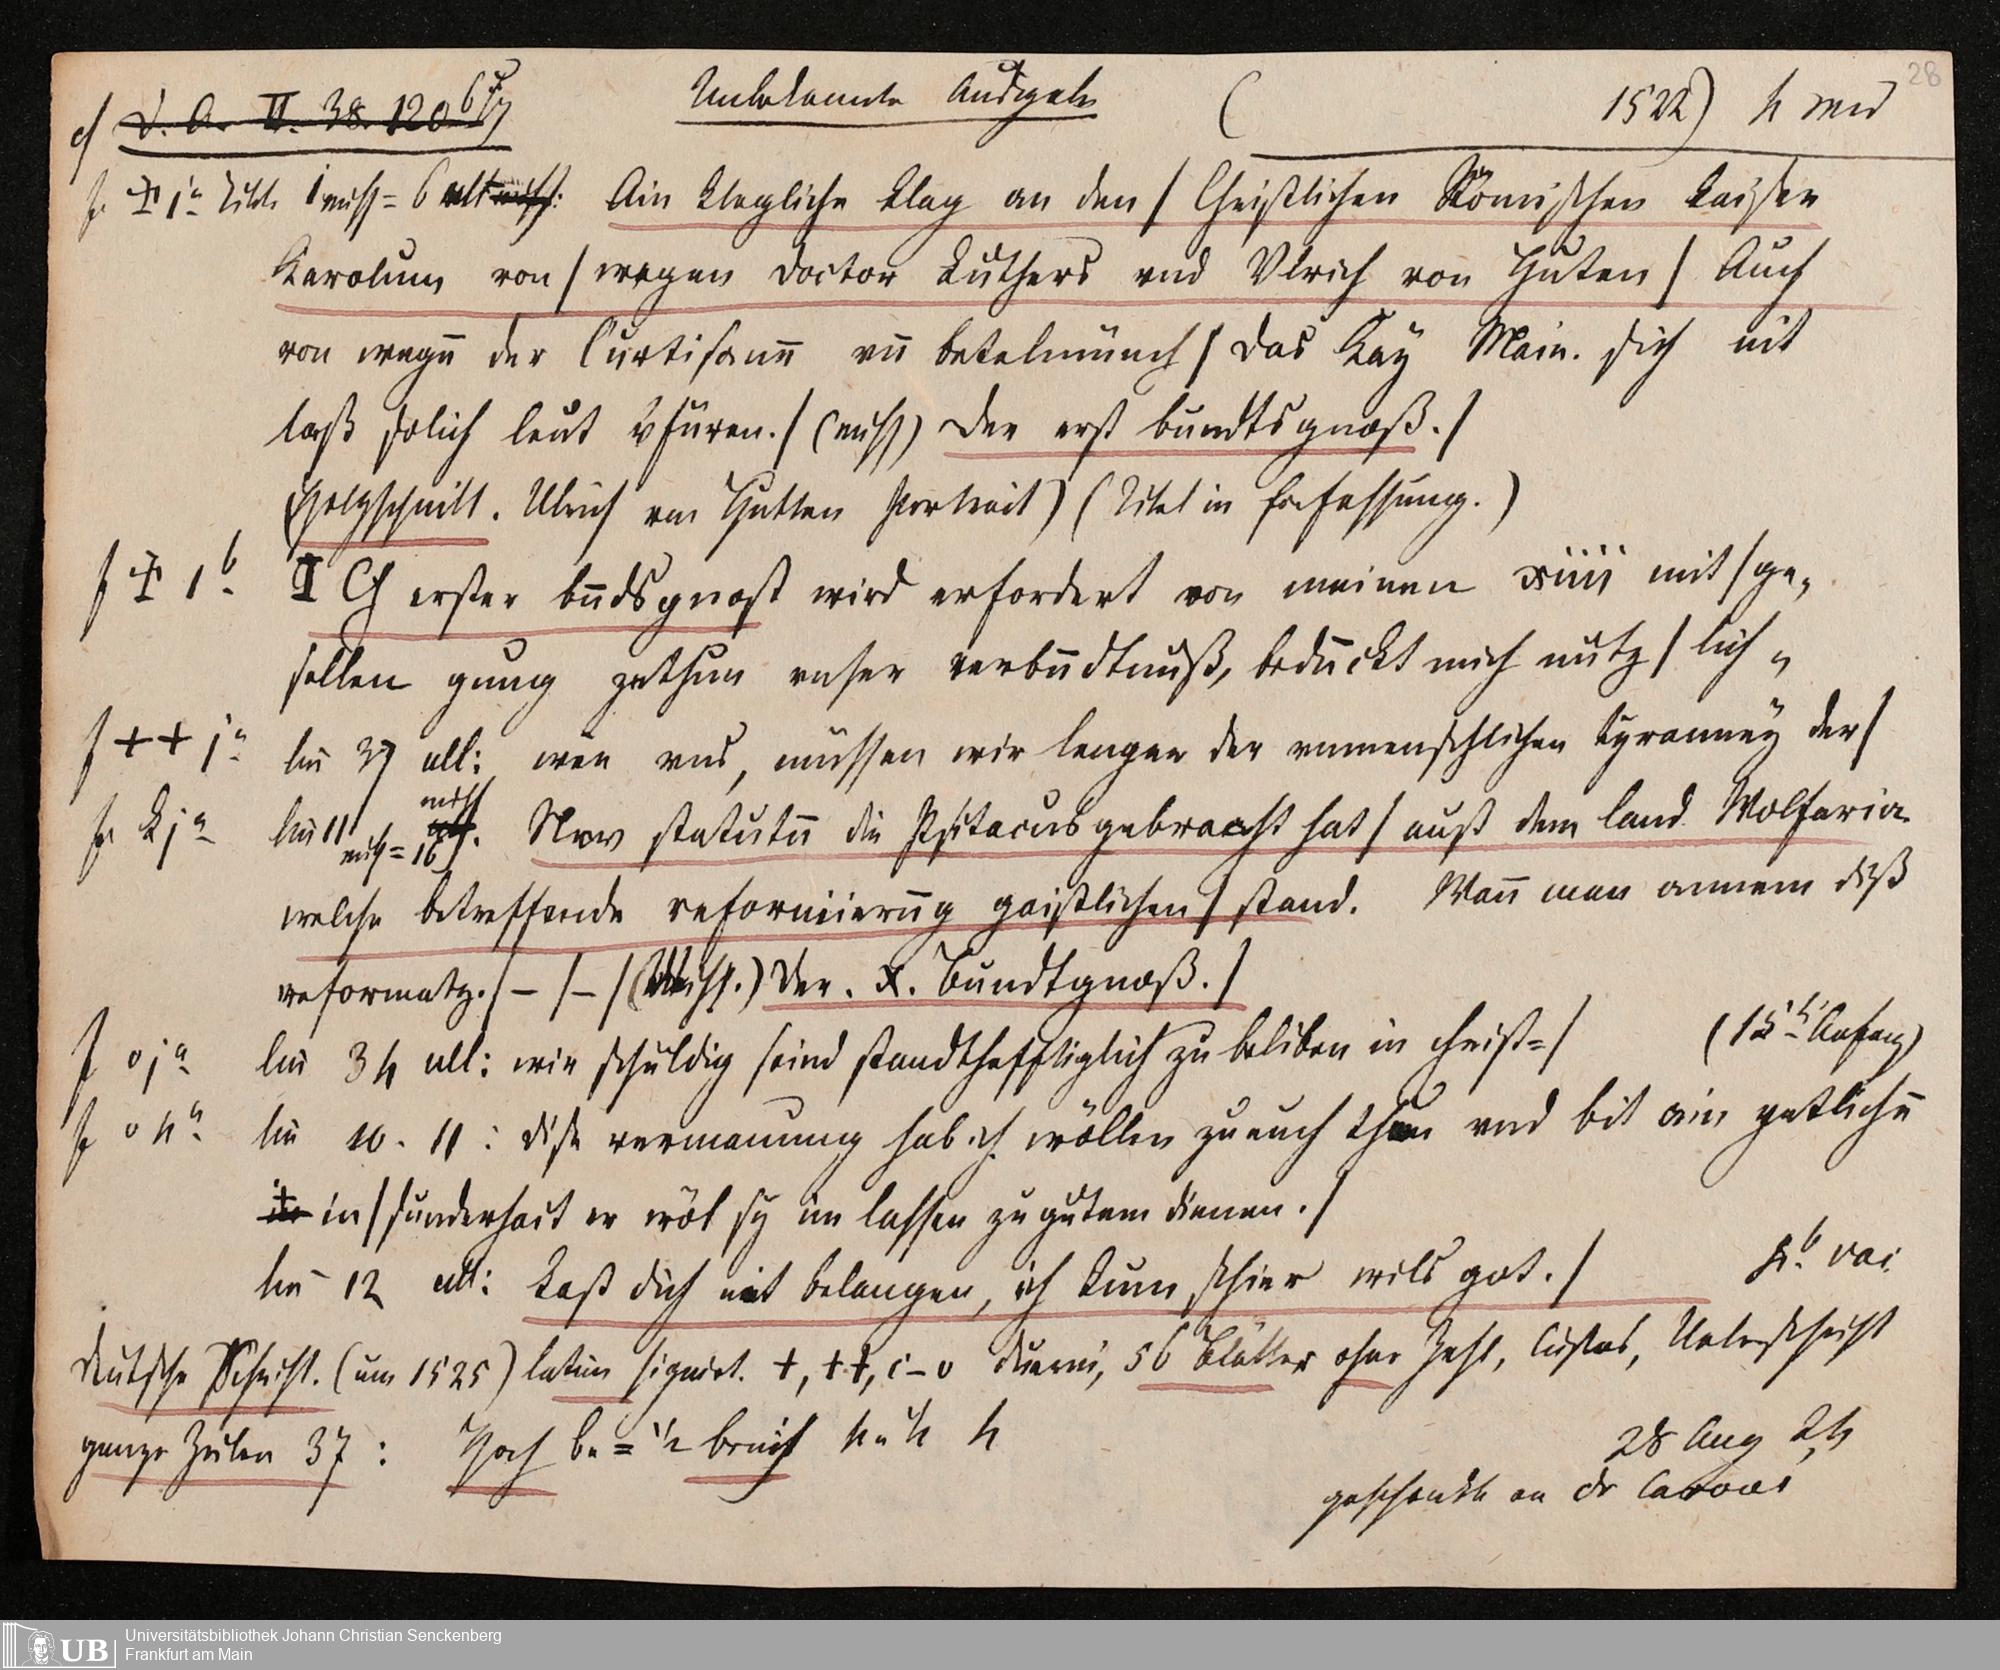 28
cf D. A. II. 38. 1206/7 Unbekannte Ausgabe ( 1522) 4 mrd
f. ‡ 1a Titel 1 miss = 6 alt: Ain klegliche klag an den / Christlichen Römischen kaiser
Karolum von / wegen doctor Luthers vnd Vlrich von Huten / Auch
von wegn̄ der Curtisann̄ vn̄ betelmünch / das Kay Main. sich nit
laß solich leut vfüren. / (miss) Der erst bundtsgnoß. /
(Holzschnitt. Ulrich von Hutten Portrait) (Titel in Einfassung.)
f ‡ 1b I Ch erster bn̄dsgnost wird erfordert von meinen xiiii mit / ge„
sellen gnug zethun vnser verbn̄dtnuß, bedn̄ckt mich nutz / lich „
f ++ ja lin 37 ult: wen vns, müssen wir lenger der vnmenschlichen tyranney der /
f. k ja lin 11 miss = 16 miss. New statutn̄ die Psitacus gebracht hat / auß dem land Wolfaria
welche betreffende reformiern̄g geistlichen / stand. Wan̄ man annem diß
reformatz. / – / – / (Miss.) Der . X. Bundtgnoß. /
f o ja lin 34 ult: wir schuldig seind standthafftiglich zu beliben in christ= / (15r Anfang)
f o 4a lin 10. 11: dise vermanung hab ich wöllen zu euch thun vnd bit ain yetlichn̄
in / sunderhait er wöl sy im lassen zu gutem dienen. /
lin 12 ult: Laß dich nit belangen, ich kum schier wils got. / 4b. vac.
Deutsche Schrift. (um 1525) latein signirt. +, ++, c–o duerni, 56 Blätter ohne Zahl, Custos, Ueberschrift
ganze Zeilen 37: Hoch be = ½ breit 4 u 4 4
28 Aug 24
geschenkt an Dr Carové
UB Universitätsbibliothek Johann Christian Senckenberg
Frankfurt am Main